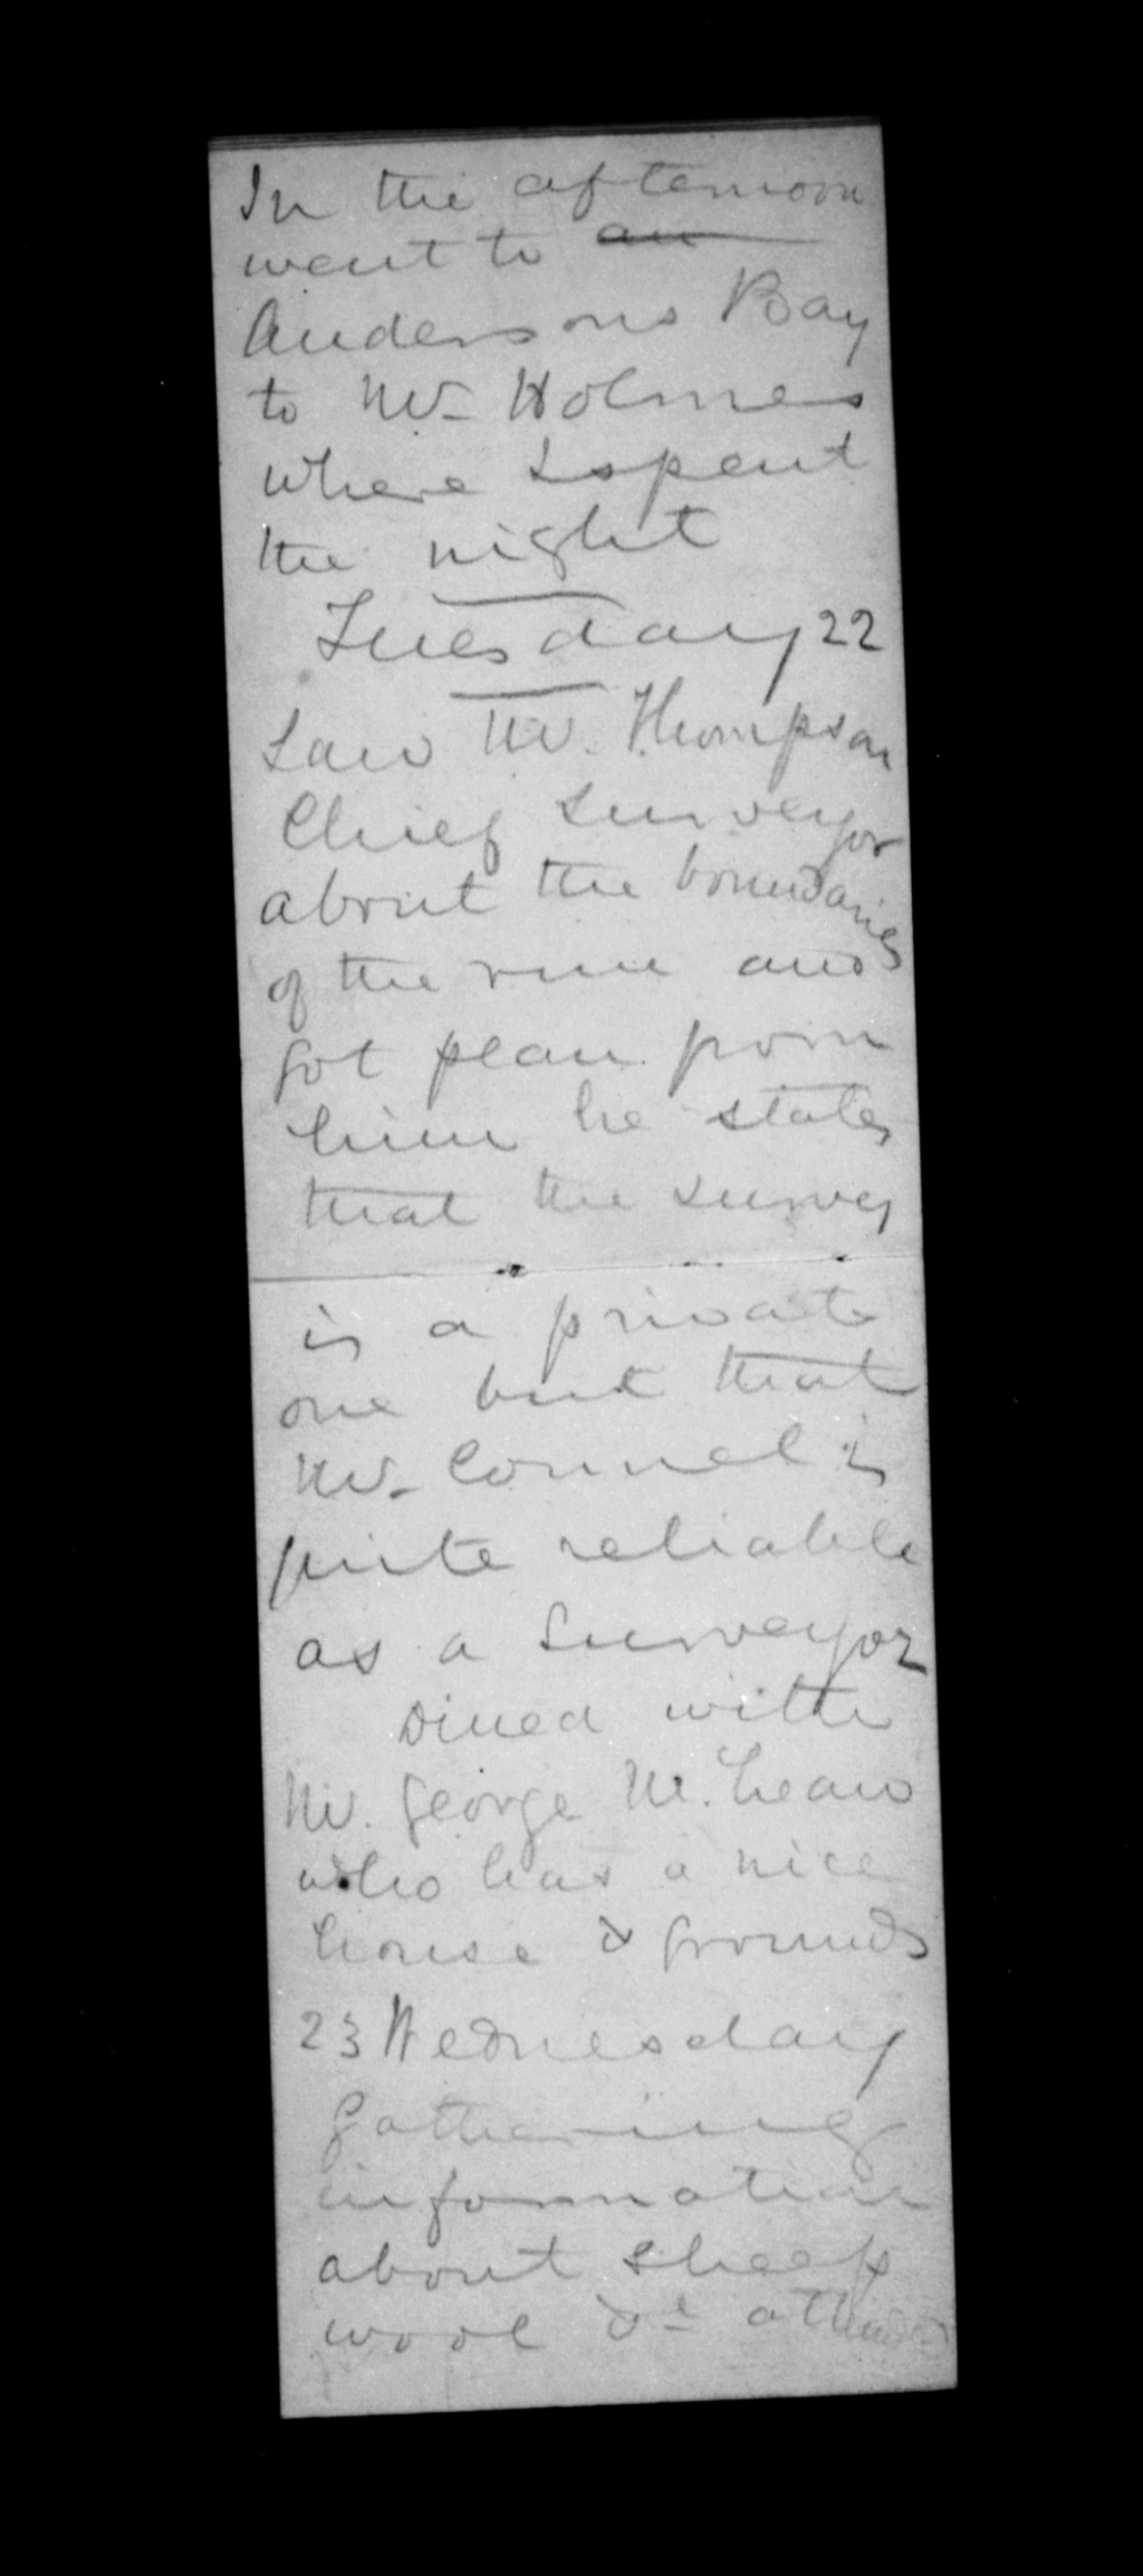 In the afternoon
went to an
Andersons Bay
to Mr. Holmes
where I spent
the night
Tuesday 22
Saw Mr. Thompson
Chief Surveyor
about the boundaries
of the run and
got plan from
him he states
that the survey
is a private
one but that
Mr. Connel is
quite reliable
as a Surveyor
Dined with
Mr. George McLean
who has a nice
house & grounds
23 Wednesday
Gathering
information
about sheep
wool &c